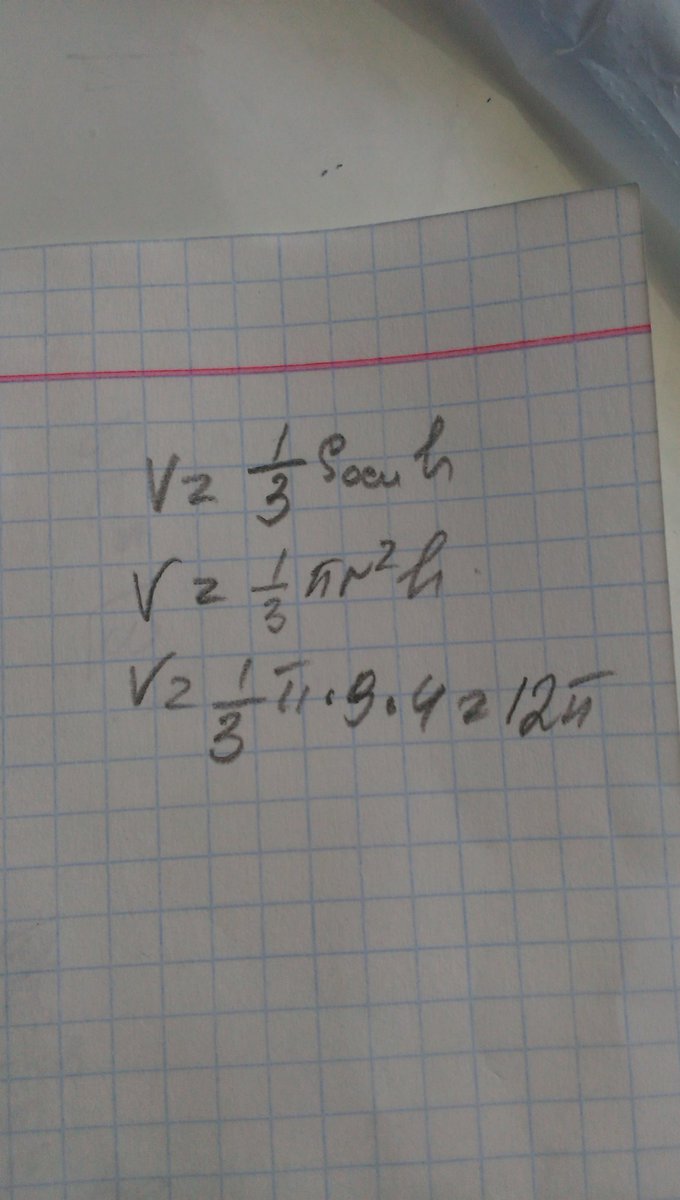 V = 1/3 Sосн h
V = 1/3 πr² h
V = 1/3 π · 9 · 4 = 12π